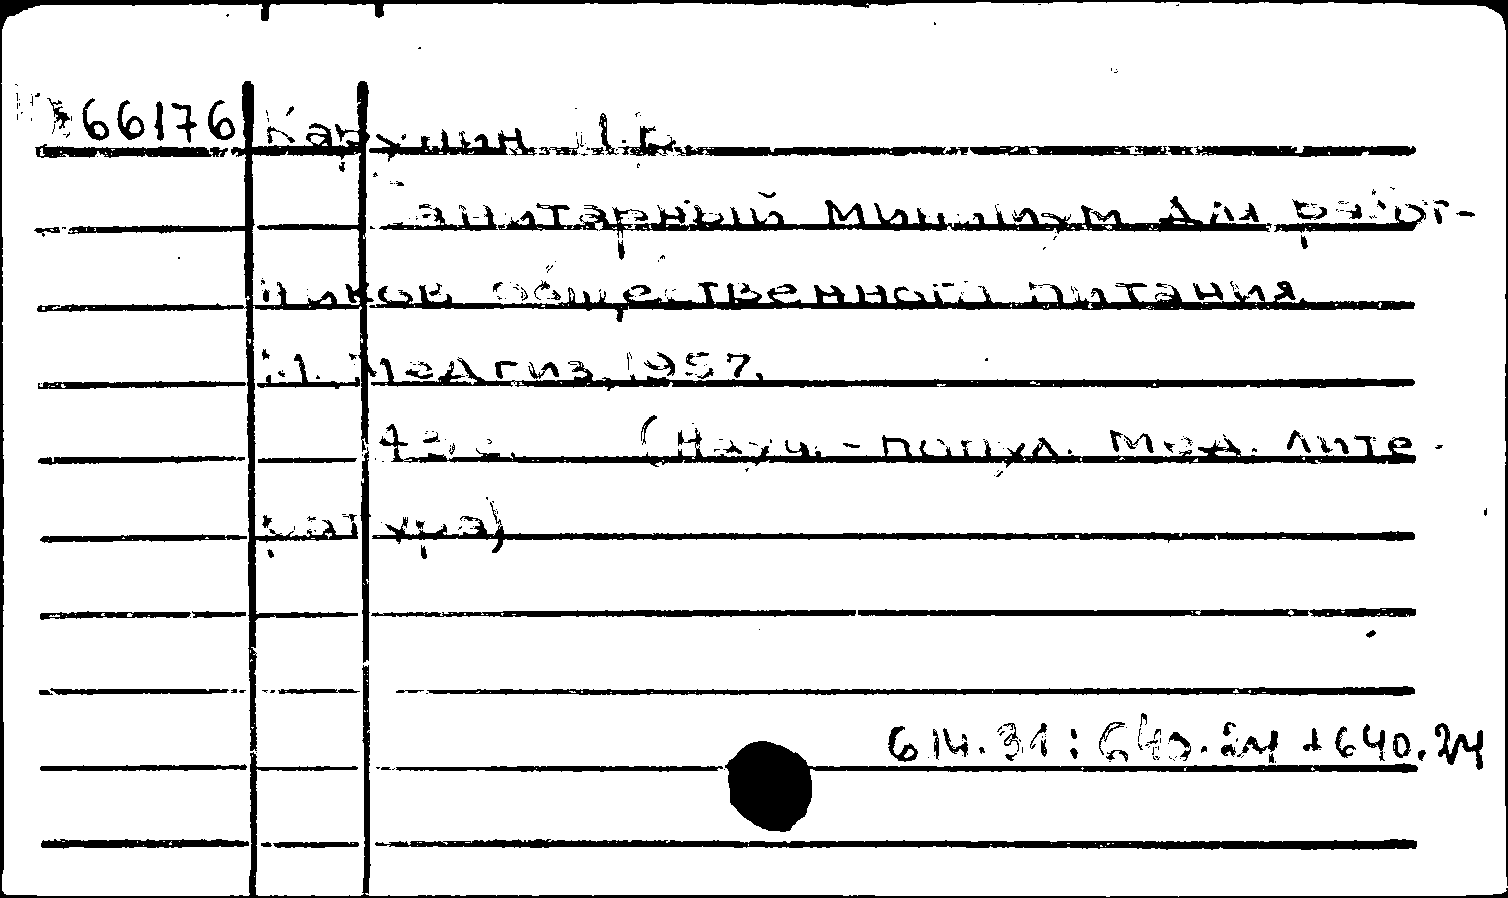 66176 Карухин Л.Б.
Санитарный минимум для работ-
ников общественного питания
М. Медгиз, 1957.
43 с. (Научн.-попул. мед. лите-
ратура)
614.31:640.24+640.24